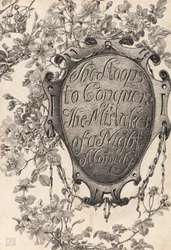 She Stoops
to Conquer
or
The Mistakes
of a Night
A Comedy